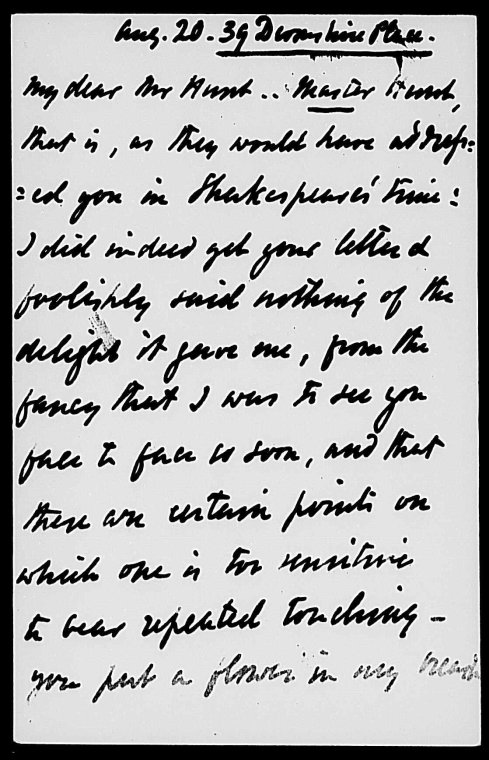 Aug. 20. 39 Devonshire Place.
My dear Mr Hunt .. Master Hunt,
that is, as they would have address=
=ed you in Shakespeare's time:
I did indeed get your letter &
foolishly said nothing of the
delight it gave me, from the
fancy that I was to see you
face to face so soon, and that
there are certain points on
which one is too sensitive
to bear repeated touching –
you put a flower in my breast